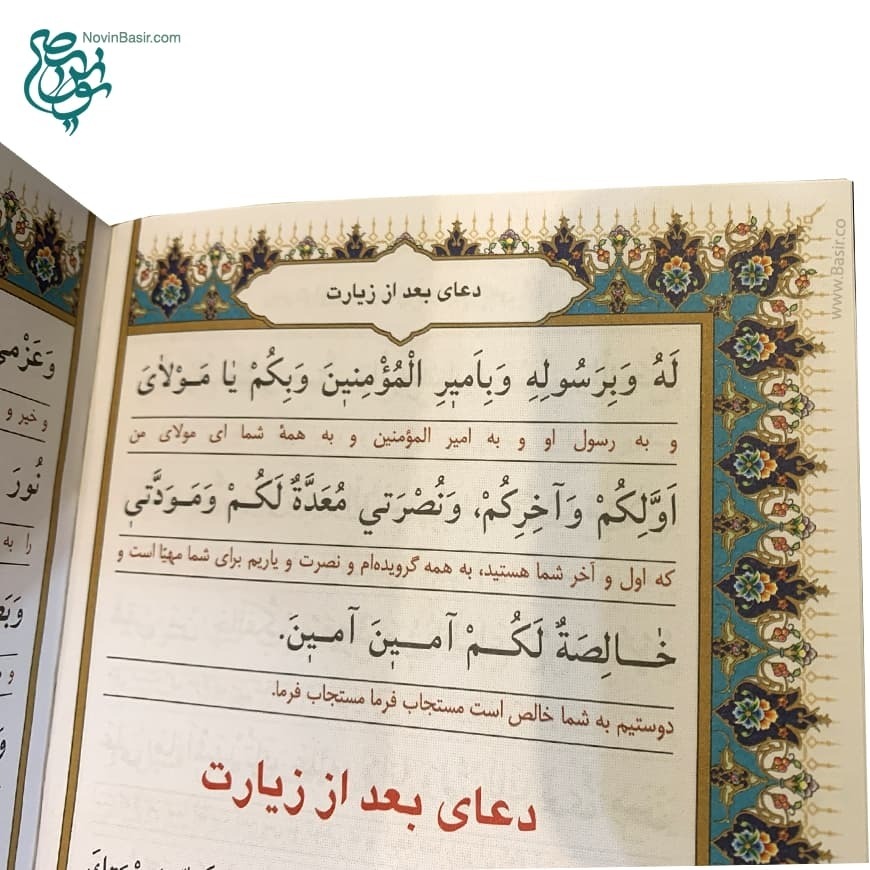 NovinBasir.com
www.Basir.co
دعای بعد از زیارت
لَهُ وَبِرَسُولِهِ وَبِاَميرِ الْمُؤْمِنينَ وَبِكُمْ يٰا مَـوْلاٰىَ
و به رسول او و به امیر المؤمنین و به همهٔ شما ای مولای من
اَوَّلِكُمْ وَآخِرِكُمْ، وَنُصْرَتي مُعَدَّةٌ لَكُـمْ وَمَـوَدَّتي
که اول و آخر شما هستید، به همه گرویده‌ام و نصرت و یاریم برای شما مهیّا است و
خٰـالِصَةٌ لَكُـمْ آمـينَ آمـينَ.
دوستیم به شما خالص است مستجاب فرما مستجاب فرما.
دعای بعد از زیارت
وَعَزْمي
و خیر و
نُورَ
را به